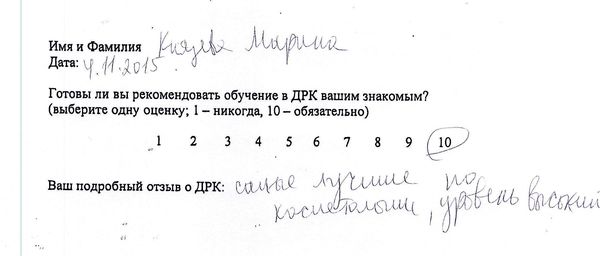 Имя и Фамилия Князева Марина
Дата: 4.11.2015.
Готовы ли вы рекомендовать обучение в ДРК вашим знакомым?
(выберите одну оценку; 1 – никогда, 10 – обязательно)
1 2 3 4 5 6 7 8 9 10
Ваш подробный отзыв о ДРК: самые лучшие по
косметологии, уровень высокий